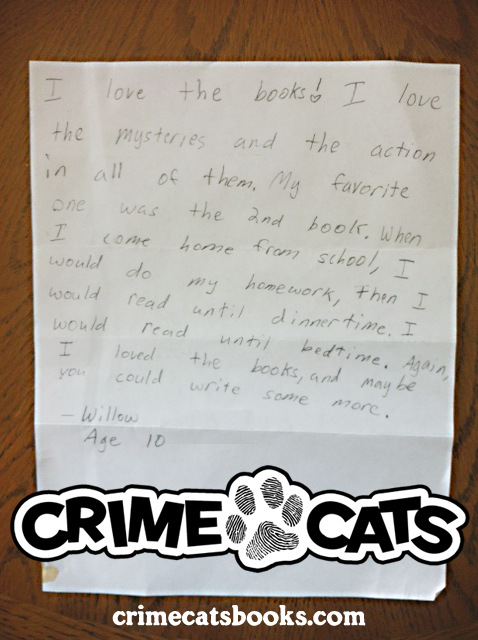 I love the books! I love
the mysteries and the action
in all of them. My favorite
one was the 2nd book. When
I come home from school, I
would do my homework, then I
would read until dinnertime. I
would read until bedtime. Again,
I loved the books, and maybe
you could write some more.
- Willow
Age 10
CRIME CATS
crimecatsbooks.com